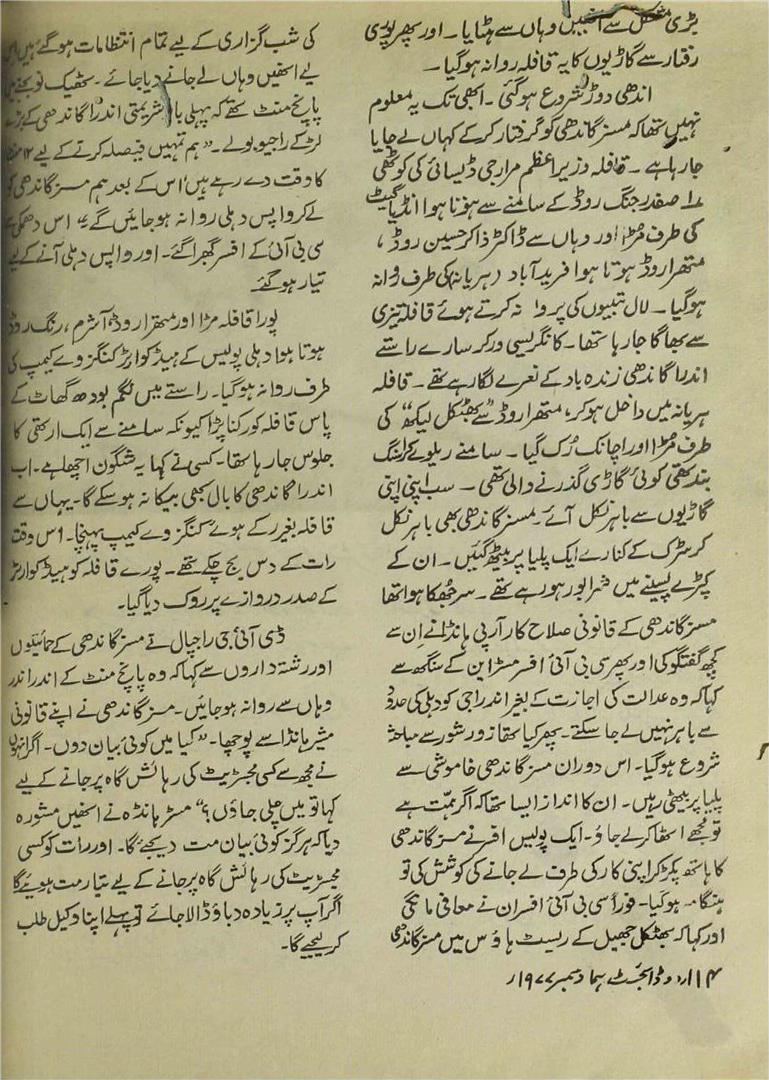 بڑی مشکل سے انہیں وہاں سے ہٹایا ۔ اور پھر پوری
رفتار سے گاڑیوں کا یہ قافلہ روانہ ہوگیا ۔
اندھی دوڑ شروع ہوگئی ۔ ابھی تک یہ معلوم
نہیں تھا کہ مسز گاندھی کو گرفتار کرکے کہاں لے جایا
جارہا ہے ۔ قافلہ وزیراعظم مرارجی ڈیسائی کی کوٹھی
۱۔ صفدر جنگ روڈ کے سامنے سے ہوتا ہوا انڈیا گیٹ
کی طرف مڑا اور وہاں سے ڈاکٹر ذاکر حسین روڈ ،
متھرا روڈ ہوتا ہوا فرید آباد (ہریانہ) کی طرف روانہ
ہوگیا ۔ لال بتیوں کی پروا نہ کرتے ہوئے قافلہ تیزی
سے بھاگا جارہا تھا ۔ کانگریسی ورکر سارے راستے
اندرا گاندھی زندہ باد کے نعرے لگا رہے تھے ۔ قافلہ
ہریانہ میں داخل ہوکر، متھرا روڈ سے بھٹکل لیکھ" کی
طرف مڑا اور اچانک رُک گیا ۔ سامنے ریلوے کراسنگ
بند تھی کوئی گاڑی گذرنے والی تھی ۔ سب اپنی اپنی
گاڑیوں سے باہر نکل آئے۔ مسز گاندھی بھی باہر نکل
کر سڑک کے کنارے ایک پلیا پر بیٹھ گئیں ۔ ان کے
کپڑے پسینے میں شرابور ہو رہے تھے ۔ سر جُھکا ہوا تھا
مسز گاندھی کے قانونی صلاح کار آر پی ہانڈا نے اِن سے
کچھ گفتگو کی اور پھر سی بی آئی افسر مسٹر این کے سنگھ سے
کہا کہ وہ عدالت کی اجازت کے بغیر اندراجی کو دہلی کی حدود
سے باہر نہیں لے جاسکتے ۔ پھر کیا تھا زور شور سے مباحثہ
شروع ہوگیا۔ اس دوران مسز گاندھی خاموشی سے
پلیا پر بیٹھی رہیں۔ ان کا انداز ایسا تھا کہ اگر ہمّت ہے
تو مجھے اٹھا کر لے جاؤ ۔ ایک پولیس افسر نے مسز گاندھی
کا ہاتھ پکڑ کر اپنی کار کی طرف لے جانے کی کوشش کی تو
ہنگامہ ہوگیا۔ فوراً سی بی آئی افسران نے معافی مانگی
اور کہا کہ بھٹکل جھیل کے ریسٹ ہاؤس میں مسز گاندھی
کی شب گزاری کے لیے تمام انتظامات ہوگئے ہیں اس
لیے انھیں وہاں لے جانے دیا جائے ۔ ٹھیک نو بجنے میں
پانچ منٹ تھے کہ پہلی بار شریمتی اندرا گاندھی کے بڑے
لڑکے راجیو بولے ۔ "ہم تمہیں فیصلہ کرنے کے لیے ۱۲ منٹ
کا وقت دے رہے ہیں اس کے بعد ہم مسز گاندھی کو
لے کر واپس دہلی روانہ ہوجائیں گے" اس دھمکی سے
سی بی آئی کے افسر گھبرا گئے ۔ اور واپس دہلی آنے کے لیے
تیار ہوگئے
پورا قافلہ مڑا اور متھرا روڈ، آشرم ، رنگ روڈ
ہوتا ہوا دہلی پولیس کے ہیڈکوارٹر کنگزوے کیمپ کی
طرف روانہ ہوگیا۔ راستے میں نگم بودھ گھاٹ کے
پاس قافلہ کو رکنا پڑا کیونکہ سامنے سے ایک ارتھی کا
جلوس جارہا تھا ۔ کسی نے کہا یہ شگون اچھا ہے ۔ اب
اندرا گاندھی کا بال بھی بیکا نہ ہوسکے گا۔ یہاں سے
قافلہ بغیر رکے ہوئے کنگزوے کیمپ پہنچا۔ اس وقت
رات کے دس بج چکے تھے ۔ پورے قافلہ کو ہیڈکوارٹر
کے صدر دروازے پر روک دیا گیا۔
ڈی آئی جی راجپال نے مسز گاندھی کے حمائتیوں
اور رشتہ داروں سے کہا کہ وہ پانچ منٹ کے اندر اندر
وہاں سے روانہ ہوجائیں۔ مسز گاندھی نے اپنے قانونی
مشیر ہانڈا سے پوچھا۔ "کیا میں کوئی بیان دوں۔ اگر انہوں
نے مجھ سے کسی مجسٹریٹ کی رہائش گاہ پر جانے کے لیے
کہا تو میں چلی جاؤں؟" مسٹر ہانڈہ نے انھیں مشورہ
دیا کہ ہرگز کوئی بیان مت دیجئے گا۔ اور رات کو کسی
مجسٹریٹ کی رہائش گاہ پر جانے کے لیے تیار مت ہوئیے گا
اگر آپ پر زیادہ دباؤ ڈالا جائے تو پہلے اپنا وکیل طلب
کر لیجیے گا۔
۱۴ ا اردو ڈائجسٹ ہما دسمبر ۱۹۷۷ء